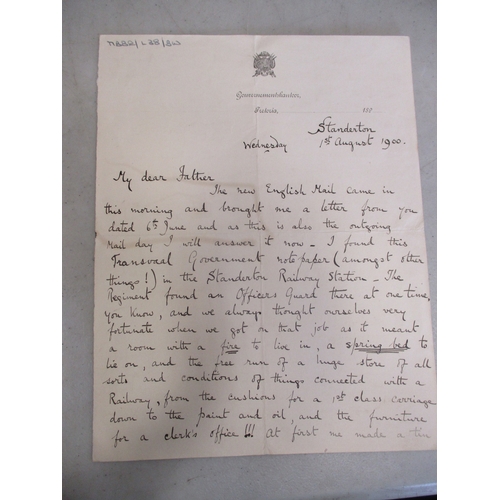 Gouvernementskantoor,
Pretoria, 187
Standerton
Wednesday 1st August 1900.
My dear Father
The new English Mail came in
this morning and brought me a letter from you
dated 6th June and as this is also the outgoing
Mail day I will answer it now – I found this
Transvaal Government notepaper (amongst other
things!) in the Standerton Railway Station – The
Regiment found an Officers Guard there at one time,
you know, and we always thought ourselves very
fortunate when we got on that job as it meant
a room with a fire to live in, a spring bed to
lie on, and the free run of a huge store of all
sorts and conditions of things connected with a
Railway, from the cushions for a 1st class carriage
down to the paint and oil, and the furniture
for a clerk's office!!! At first we made a